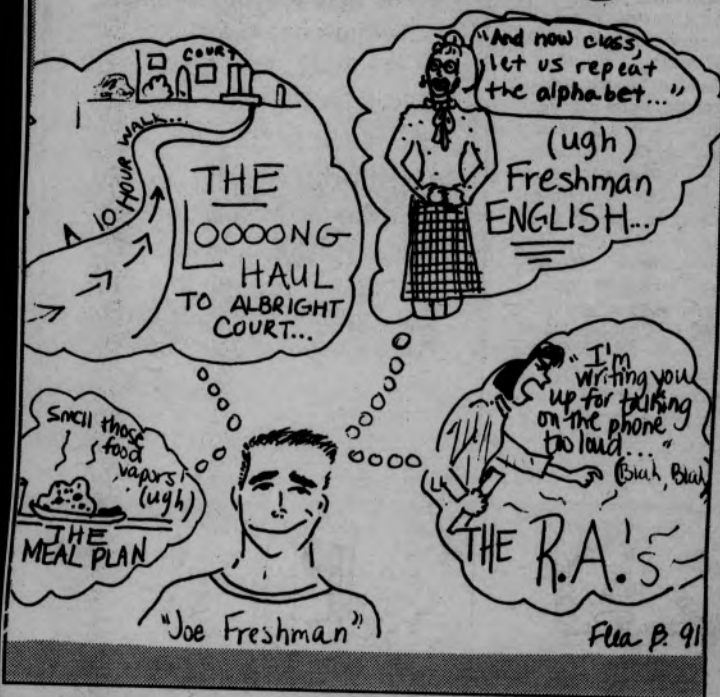 COURT
A 10 HOUR WALK...
THE
LOOOONG
HAUL
TO ALBRIGHT
COURT...
"And now class,
let us repeat
the alphabet..."
(ugh)
Freshman
ENGLISH...
Smell those
food
vapors!
(ugh)
THE
MEAL PLAN
"I'm
writing you
up for talking
on the phone
too loud..."
(Blah, Blah
THE R.A.'s
"Joe Freshman"
Flea B. 91